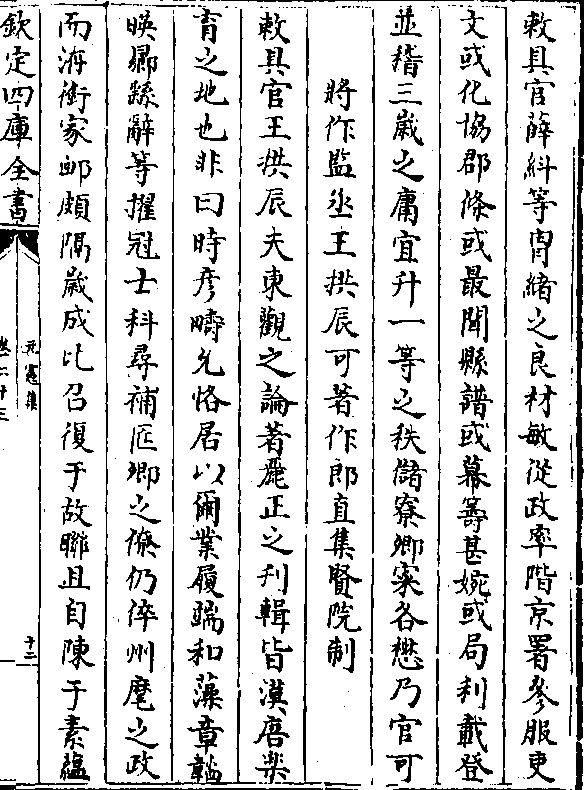 敕具官薛紏等胄緒之良材敏從政率階京署參服吏
文或化協郡條或最聞縣譜或幕籌甚婉或局利載登
並稽三歲之庸宜升一等之秩儲寮卿寀各懋乃官可
將作監丞王拱辰可著作郎直集賢院制
敕具官王拱辰夫東觀之論著麗正之刋輯皆漢唐樂
育之地也非曰時彦疇允恪居以爾業履端和藻章韞
暎鄉繇辭等擢冠士科尋補匠卿之僚仍倅州麾之政
而洊銜家邮頗隔歲成比召復于故聮且自陳于素蘊
欽定四庫全書
元憲集
卷二十三
十二